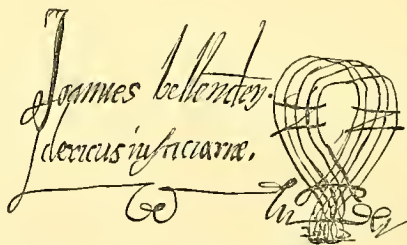 Joannes bellenden.
clericus iusticiariæ.